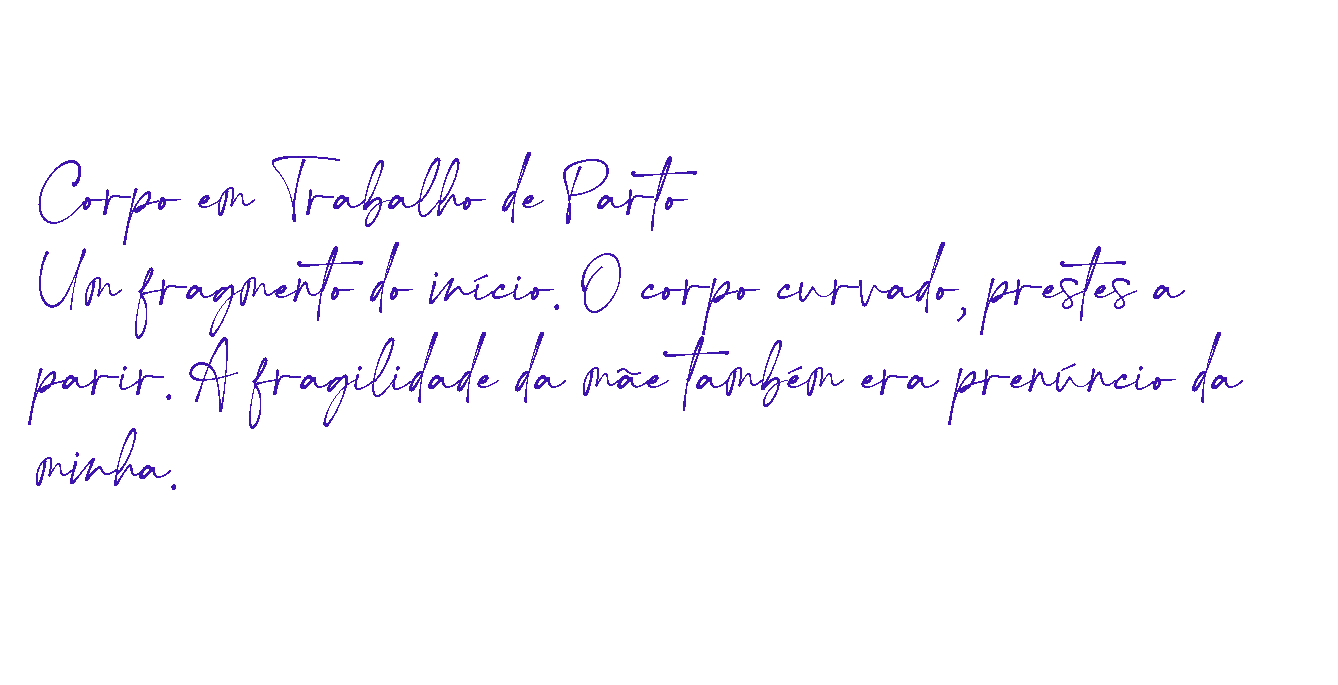 Corpo em Trabalho de Parto
Um fragmento do início. O corpo curvado, prestes a
parir. A fragilidade da mãe também era prenúncio da
minha.